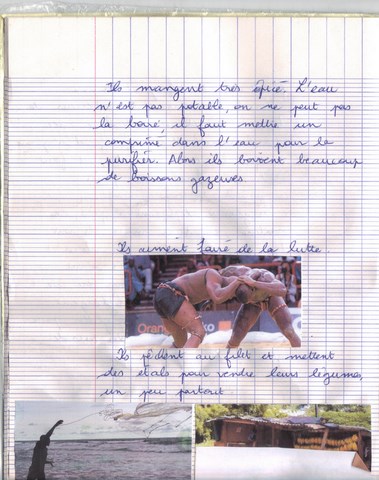 Ils mangent très épicé. L'eau
n'est pas potable, on ne peut pas
la boire, il faut mettre un
comprimé dans l'eau pour la
purifier. Alors ils boivent beaucoup
de boissons gazeuses.
Ils aiment faire de la lutte.
Orange
Ils pêchent au filet et mettent
des étals pour vendre leurs légumes,
un peu partout